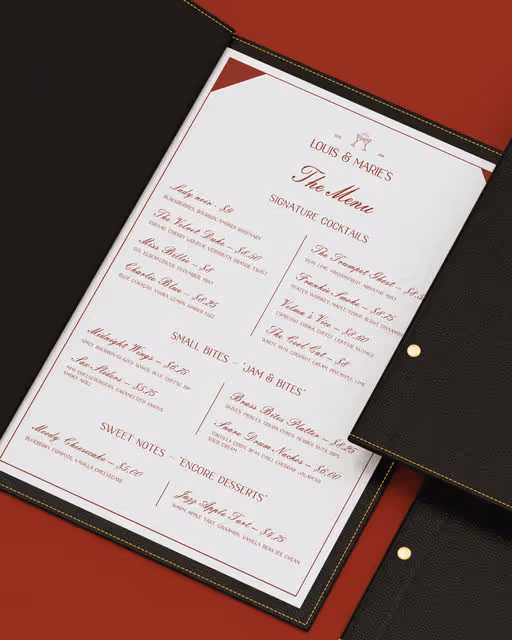 LOUIS & MARIE'S
The Menu
SIGNATURE COCKTAILS
Lady noir - $9
BLACKBERRIES, BOURBON, SMOKED ROSEMARY
The Velvet Duke – $8.50
COGNAC, CHERRY LIQUEUR, VERMOUTH, ORANGE TWIST
Miss Billie – $8
GIN, ELDERFLOWER, CUCUMBER, MINT
Charlie Blue – $8.25
BLUE CURAÇAO, VODKA, LEMON, GINGER FIZZ
The Trumpet Ghost –
DARK RUM, PASSIONFRUIT, ABSINTHE MIST
Frankie Smoke – $8.75
PEATED WHISKEY, MAPLE SYRUP, BURNT
Velma's Vice – $8.00
ESPRESSO, VODKA, COFFEE LIQUEUR, NUTMEG
The Cool Cat – $8
WHITE RUM, COCONUT CREAM, PINEAPPLE, LIME
SMALL BITES – "JAM & BITES"
Midnight Wings – $6.75
SPICY BOURBON-GLAZED WINGS, BLUE CHEESE DIP
Sax Sliders – $5.75
MINI CHEESEBURGERS, CARAMELIZED ONIONS,
SMOKY AIOLI
Brass Bites Platter – $8.25
OLIVES, PICKLES, GOUDA CUBES, HERBED SALTED NUTS
Snare Drum Nachos – $6.00
TORTILLA CHIPS, BEAN CHILI, CHEDDAR, JALAPEÑO,
SOUR CREAM
SWEET NOTES – "ENCORE DESSERTS"
Moody Cheesecake – $5.00
BLUEBERRY COMPOTE, VANILLA CHEESECAKE
Jazz Apple Tart – $4.75
WARM APPLE TART, CINNAMON, VANILLA BEAN ICE CREAM